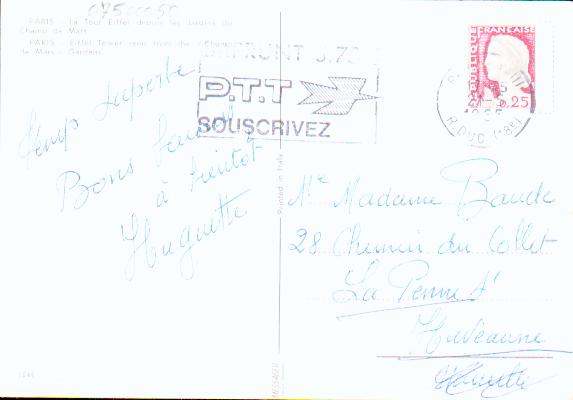 07500050
PARIS - La Tour Eiffel depuis les Jardins du
Champ de Mars
PARIS - Eiffel Tower seen from the "Champ
de Mars" Gardens
EMPRUNT 5.75
P.T.T
SOUSCRIVEZ
REPUBLIQUE FRANÇAISE
0,25
R. DUC (18e)
Temps superbe
Bons
à bientot
Huguette
Printed in Italy
Me Madame Baude
28 Chemin du Collet
La Penne s/
Huveaune